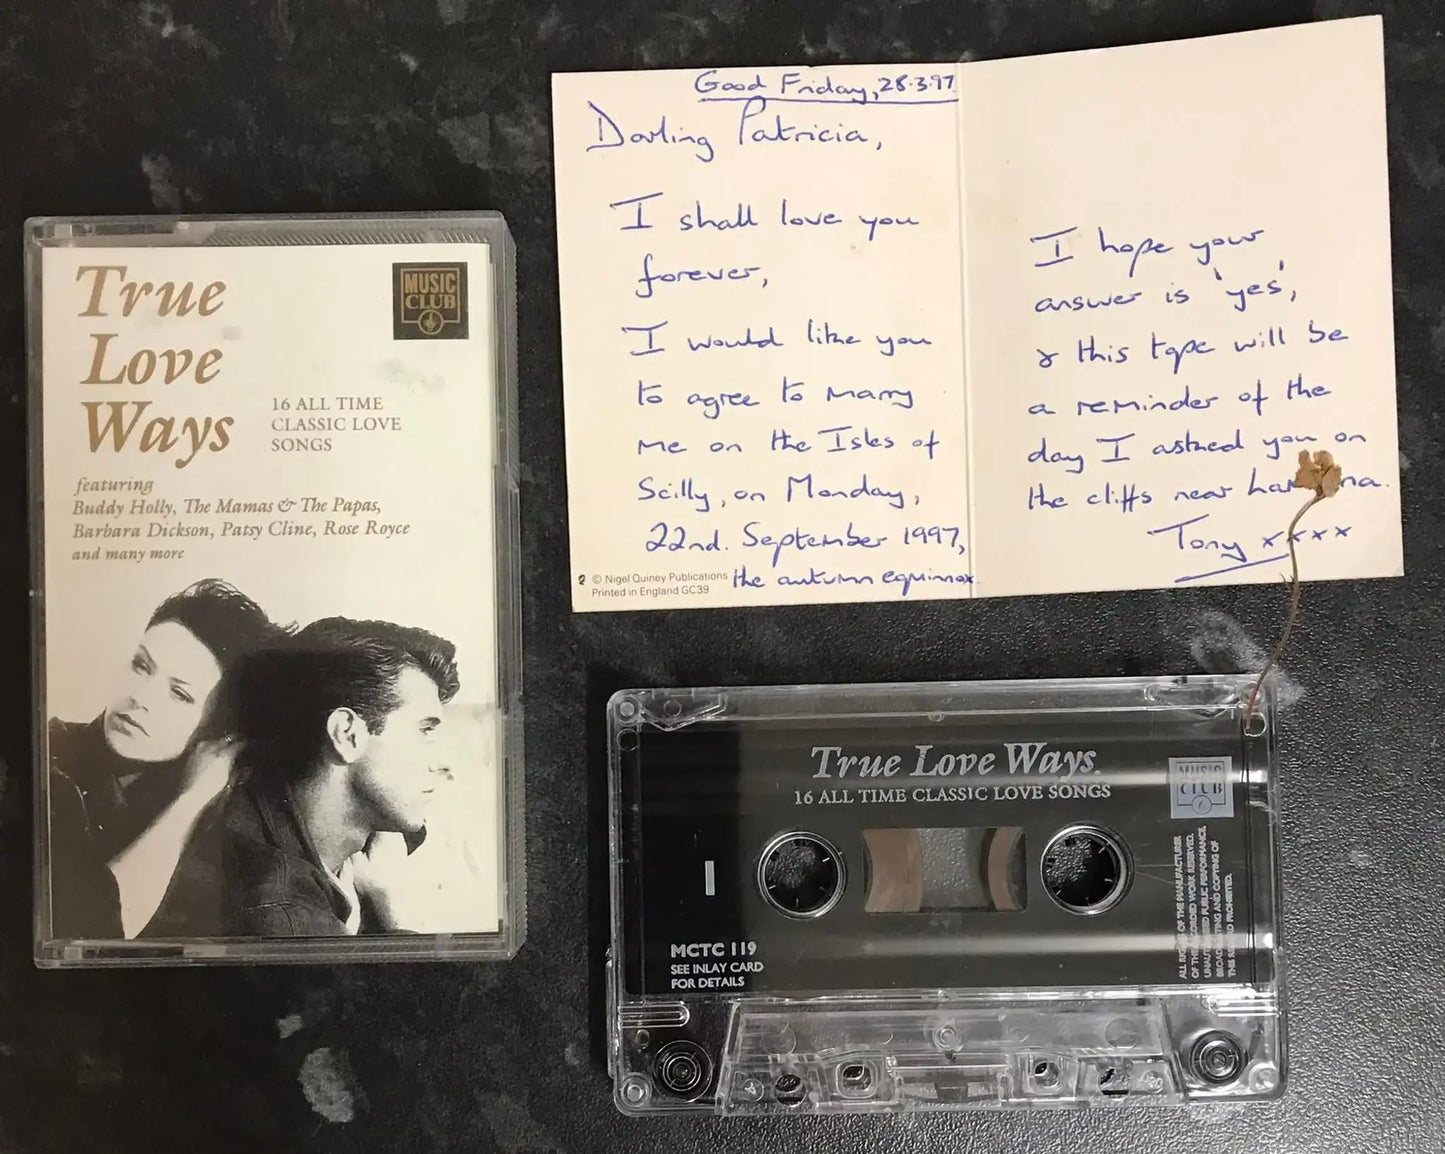 True
Love
Ways
MUSIC
CLUB
16 ALL TIME
CLASSIC LOVE
SONGS
featuring
Buddy Holly, The Mamas & The Papas,
Barbara Dickson, Patsy Cline, Rose Royce
and many more
Good Friday, 28.3.97.
Darling Patricia,
I shall love you
forever,
I would like you
to agree to marry
me on the Isles of
Scilly, on Monday,
22nd. September 1997,
the autumn equinox.
© Nigel Quiney Publications
Printed in England GC39
I hope your
answer is 'yes',
& this tape will be
a reminder of the
day I asked you on
the cliffs near
Tony xxxx
True Love Ways
16 ALL TIME CLASSIC LOVE SONGS
MUSIC
CLUB
I
MCTC 119
SEE INLAY CARD
FOR DETAILS
ALL RIGHTS OF THE MANUFACTURER
OF THE RECORDED WORK RESERVED.
UNAUTHORISED PUBLIC PERFORMANCE,
BROADCASTING AND COPYING OF
THIS RECORD PROHIBITED.